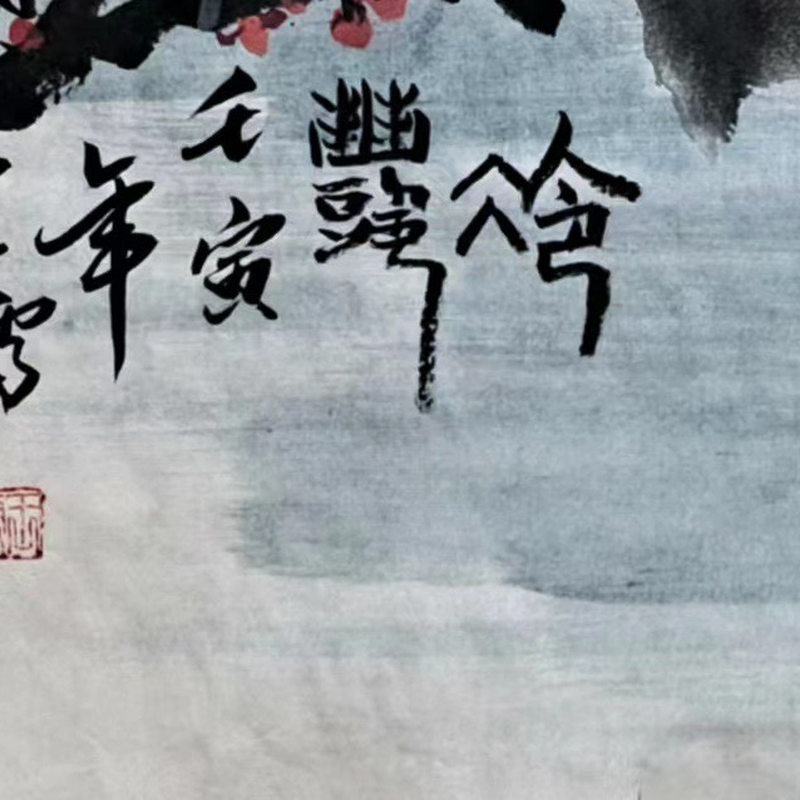 冷
艷
壬寅
年